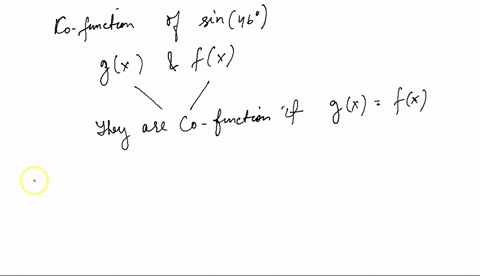 Co-function of sin(46°)
g(x) & f(x)
They are Co-function if g(x) = f(x)